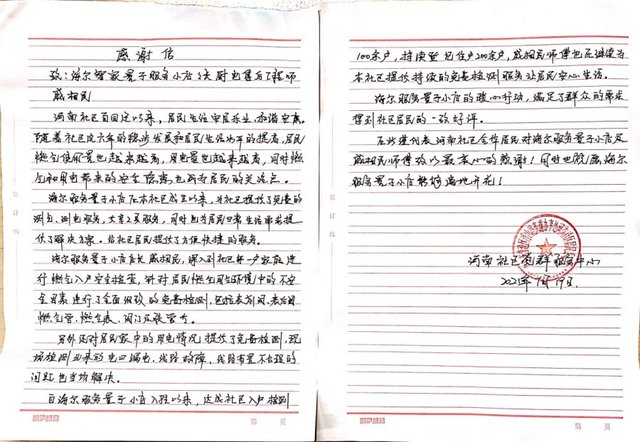 感谢信
致：海尔智家量子服务小店
戚相民
河南社区自回迁以来，居民生活安居乐业、和谐
随着社区这六年的稳步发展和居民生活水平的提高，居民
燃气使用量也越来越多，用电量也越来越多，同时燃
气和用电带来的安全隐患也成为居民的关注点。
海尔服务量子小店在本社区成立以来，为社区提供了免费的
测、测电服务，大家服务，同时也为居民日常生活需求提
供了解决方案。给社区居民提供了方便快捷的服务。
海尔服务量子小店店长戚相民，深入到社区每一户家庭进
行燃气入户安全检查，针对居民燃气用气环境中的不安
全因素进行了全面细致的免费检测，包括表前阀、表后阀
燃气管、燃气表、阀门及软管等。
另外还对居民家中的用电情况提供了免费检测，现
场检测出来的电口漏电、线路故障，线路布置不合理的
问题也当场解决。
自海尔服务量子小店入驻以来，达成社区入户检测
100余户，持续登记住户200余户，戚相民师傅也在继续为
本社区提供持续的免费检测服务让居民安心生活。
海尔服务量子小店的暖心行动，满足了群众的需求
得到社区居民的一致好评。
在此谨代表河南社区全体居民对海尔服务量子小店及
戚相民师傅致以最衷心的感谢！同时也祝愿海尔
服务量子小店能够遍地开花！
河南社区党群服务中心
2023年1月19日
第 页
第 页